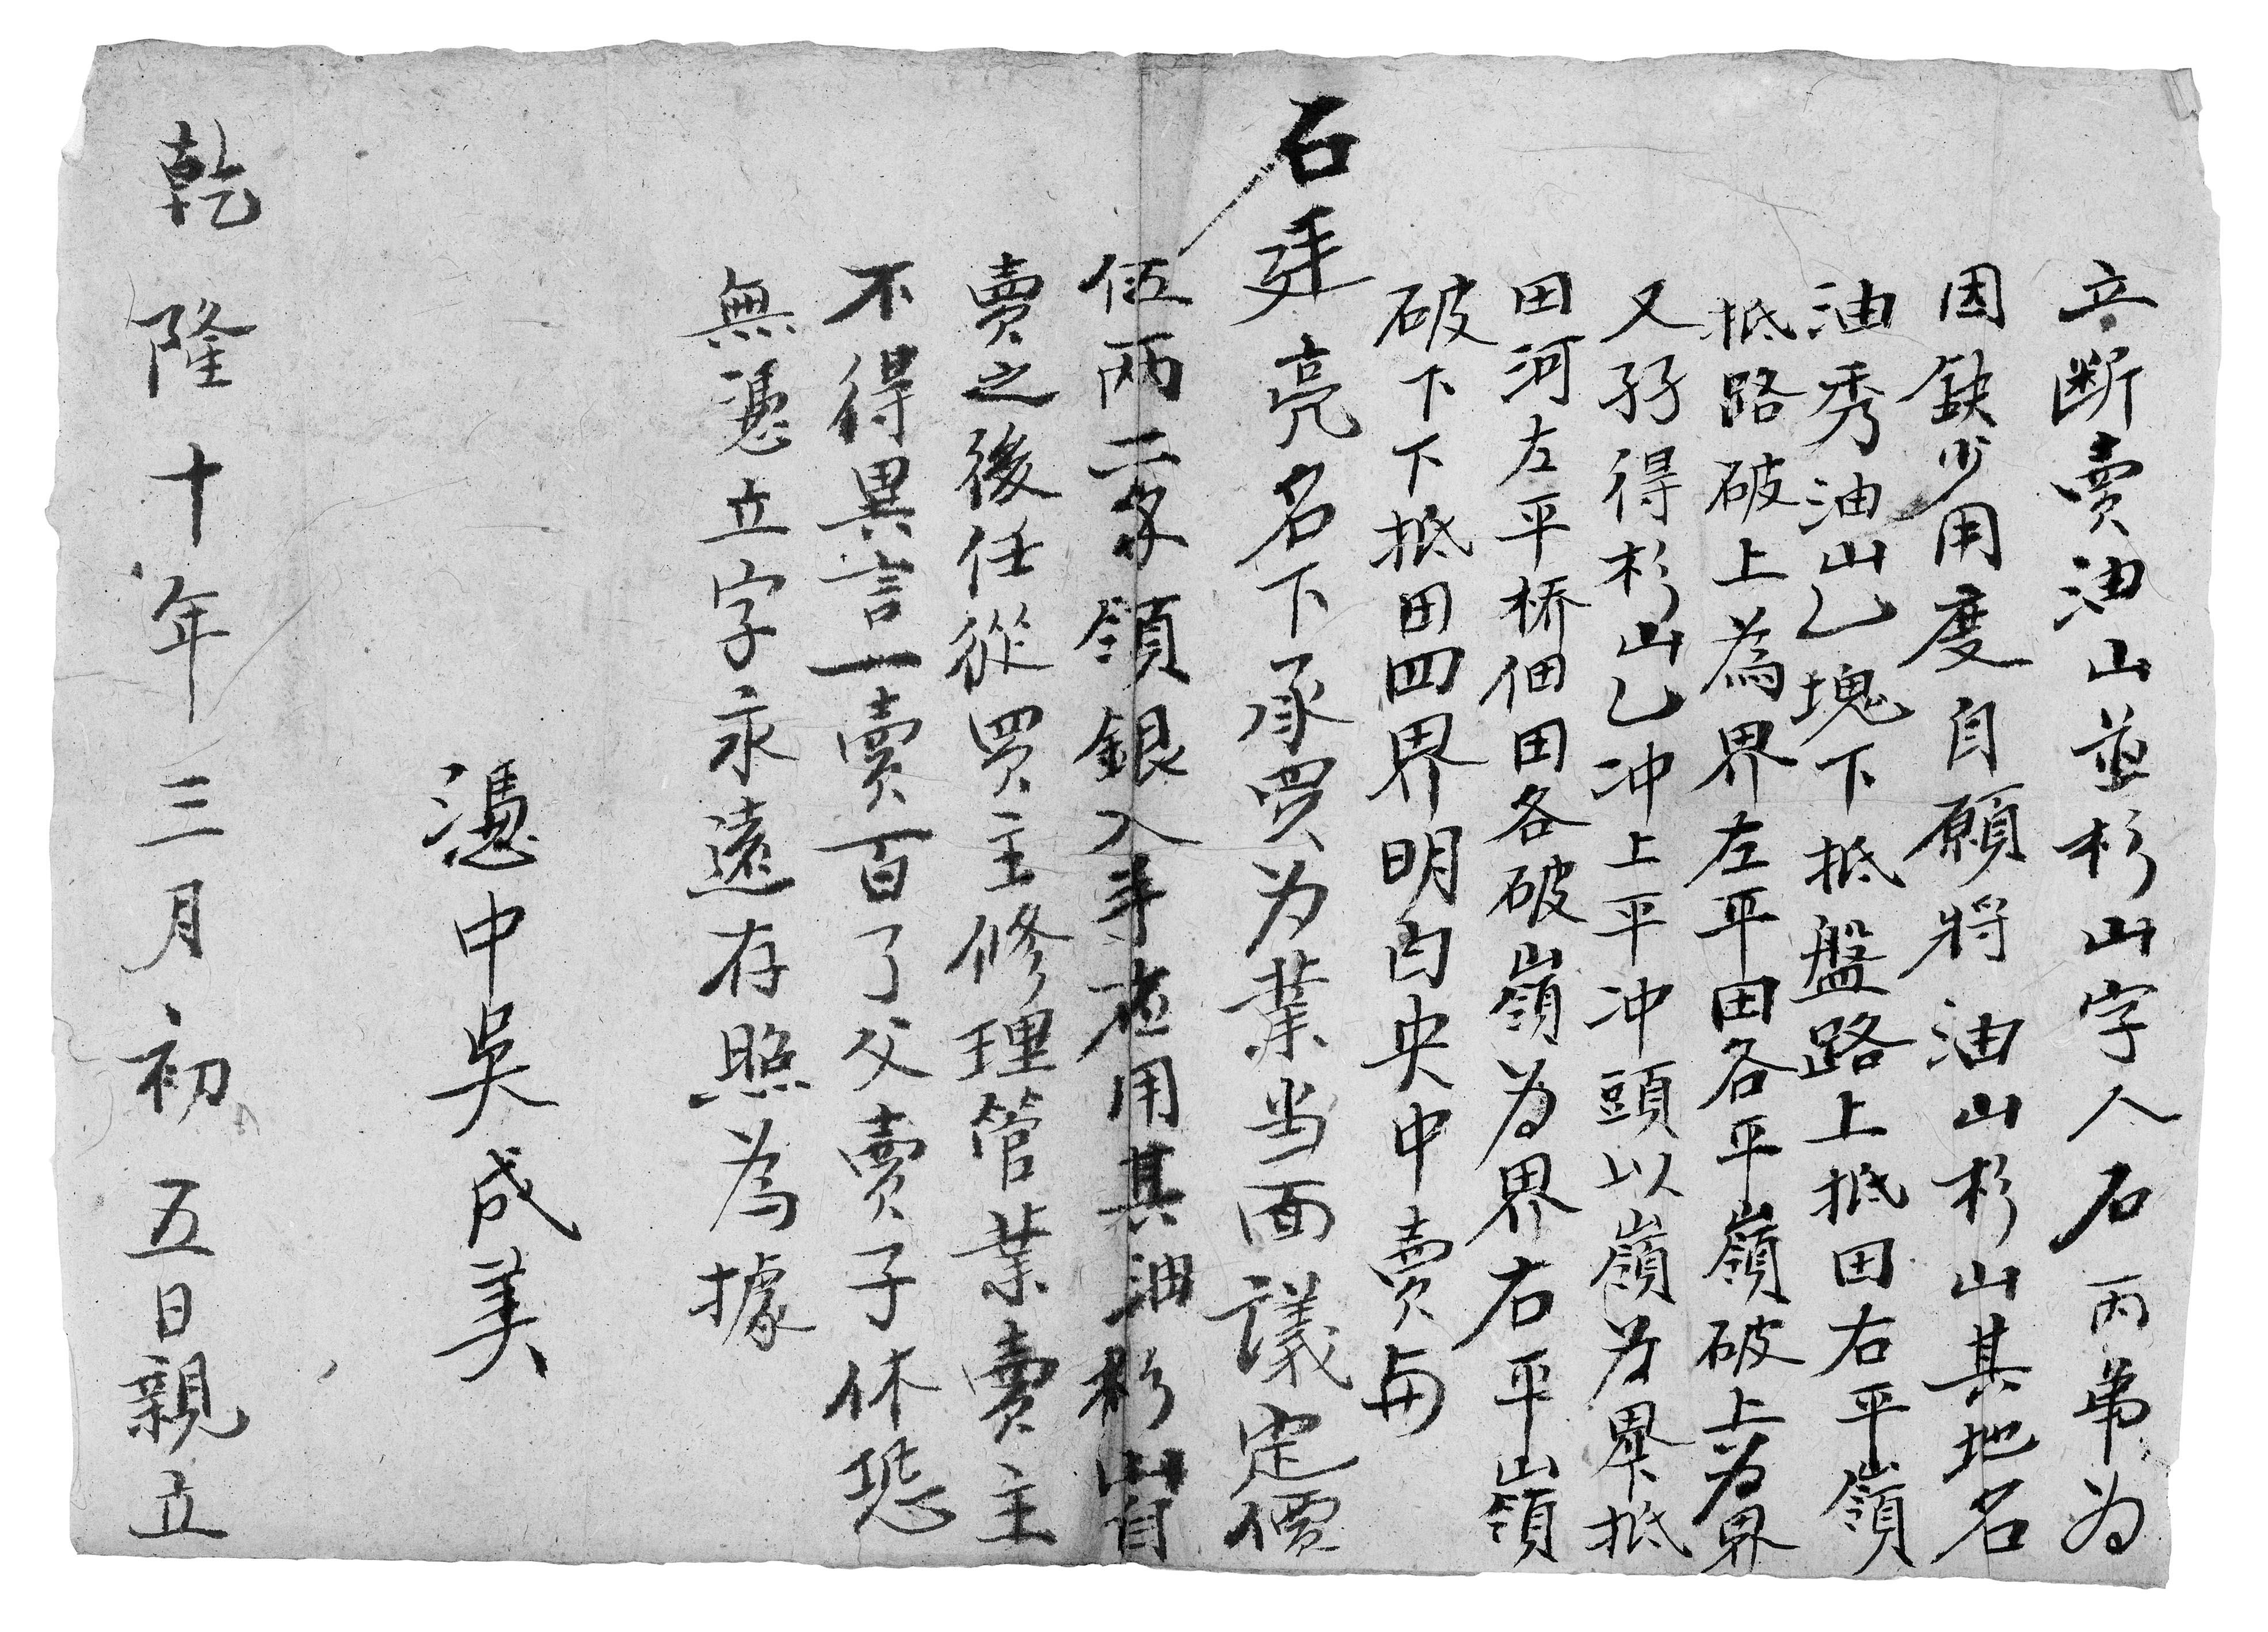 立断賣油山並杉山字人石丙弟为
因缺少用度自願将油山杉山其地名
油秀油山乙塊下抵盤路上抵田右平嶺
抵路破上為界左平田各平嶺破上为界
又孖得杉山乙冲上平冲頭以嶺为界下抵
田河左平桥佃田各破嶺为界右平嶺
破下下抵田四界明白央中賣与
石廷亮名下承買为業当面議定價
伍兩二錢領銀入手應用其油杉山自
賣之後任從買主修理管業賣主
不得異言一賣百了父賣子休恐
無憑立字永遠存照為據
憑中吳成美
乾隆十年三月初五日親立